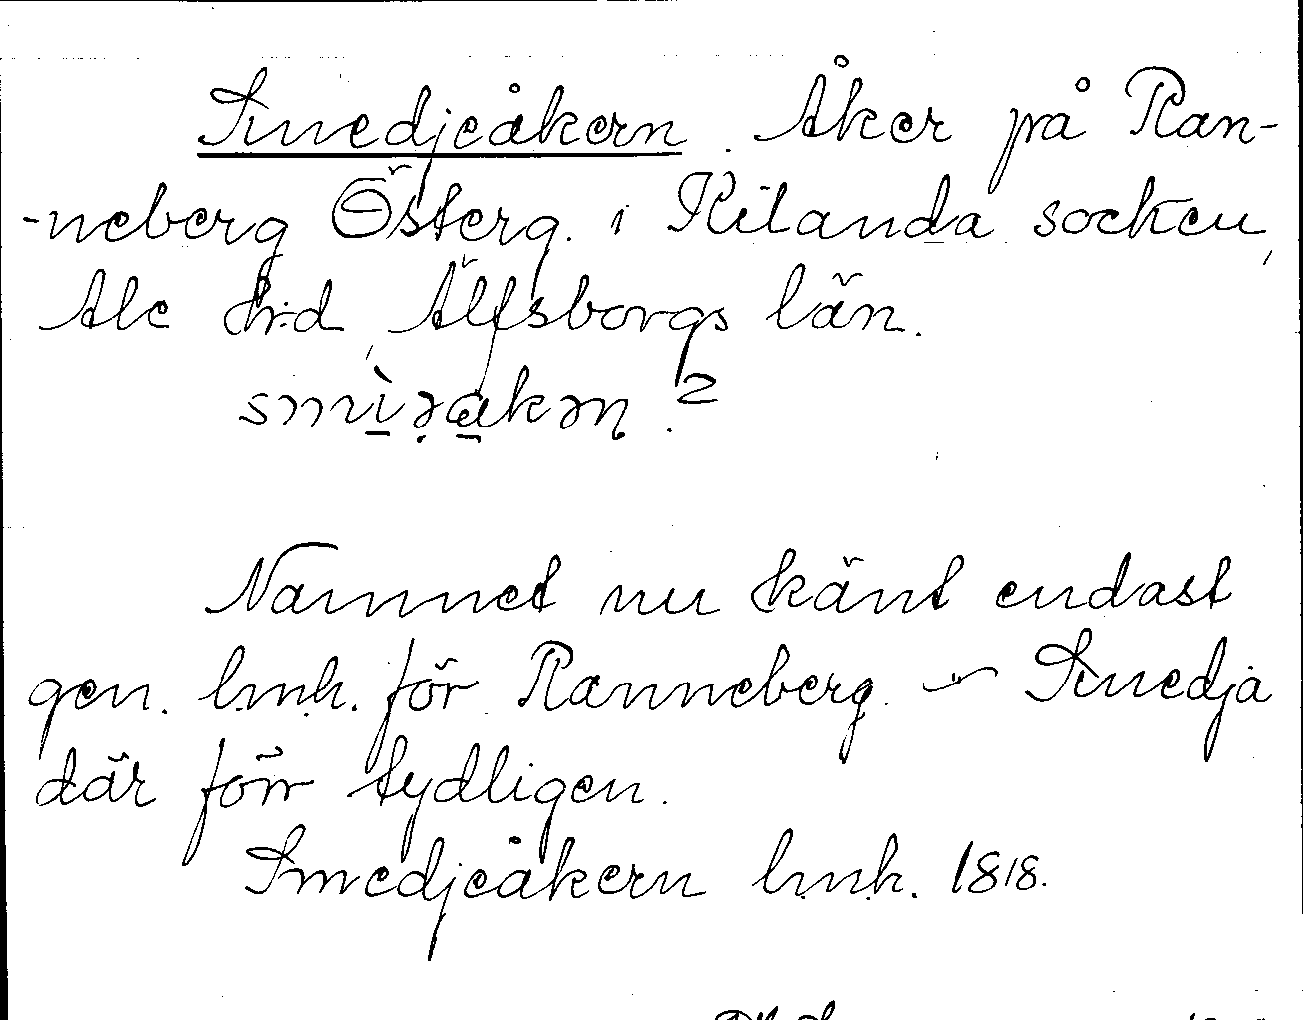 Smedjeåkern. Åker på Ran-
-neberg Österg. i Kilanda socken,
Ale hrd, Älfsborgs län.
Namnet nu känt endast
gen. lmh. för Ranneberg. – Smedja
där förr tydligen.
Smedjeåkern lmh. 1818.